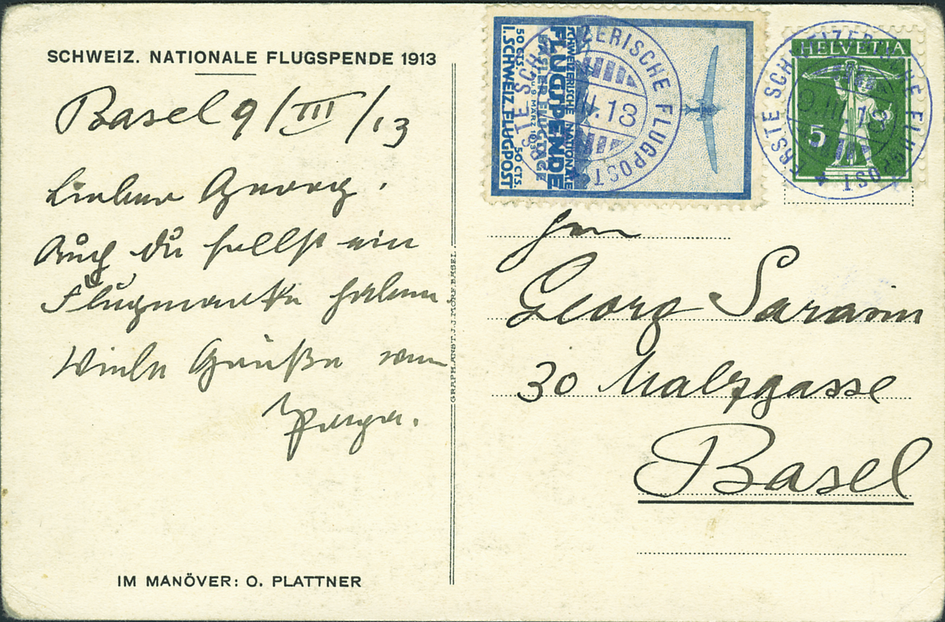 SCHWEIZ. NATIONALE FLUGSPENDE 1913
Basel 9/III/13
Lieber Georg.
Auch du sollst ein
Flugmarke haben.
Viele Grüße von
Papa.
IM MANÖVER: O. PLATTNER
GRAPH. ANST. J. J. MORF, BASEL.
SCHWEIZERISCHE NATIONALE
FLUGSPENDE
BASLER FLUGTAGE
I. SCHWEIZ. FLUGPOST
50 CTS.
50 CTS.
ERSTE SCHWEIZERISCHE FLUGPOST
III.13
HELVETIA
5
ERSTE SCHWEIZERISCHE FLUGPOST
9.III.13
Herrn
Georg Sarasin
30 Malzgasse
Basel